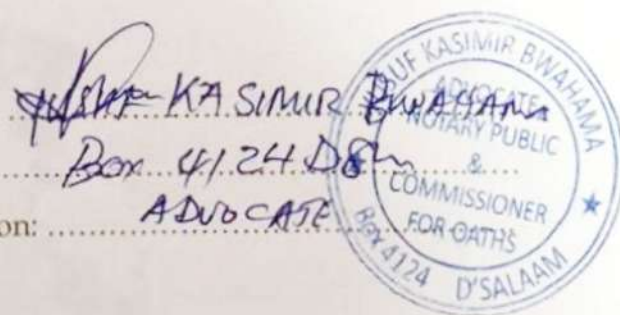 KASIMIR BWAHAMA
Box 4124 DSM
ADVOCATE
on:
UF KASIMIR BWAHAMA
ADVOCATE
NOTARY PUBLIC
&
COMMISSIONER
FOR OATHS
BOX 4124 D'SALAAM